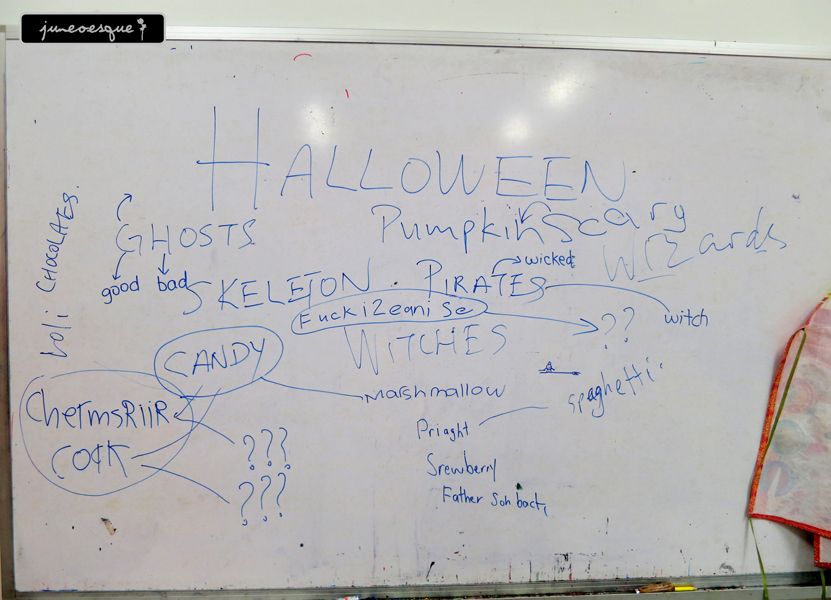 juneoesque
HALLOWEEN
Loli CHOCOLATES.
GHOSTS
Pumpkin Scary
Wizards
good bad
SKELETON . PIRATES
wicked
witch
Fuckizeanise
??
WITCHES
CANDY
Marshmallow
spaghetti
ChermsRiiR
COCK
???
???
Priaght
Srewberry
Father Son bact,